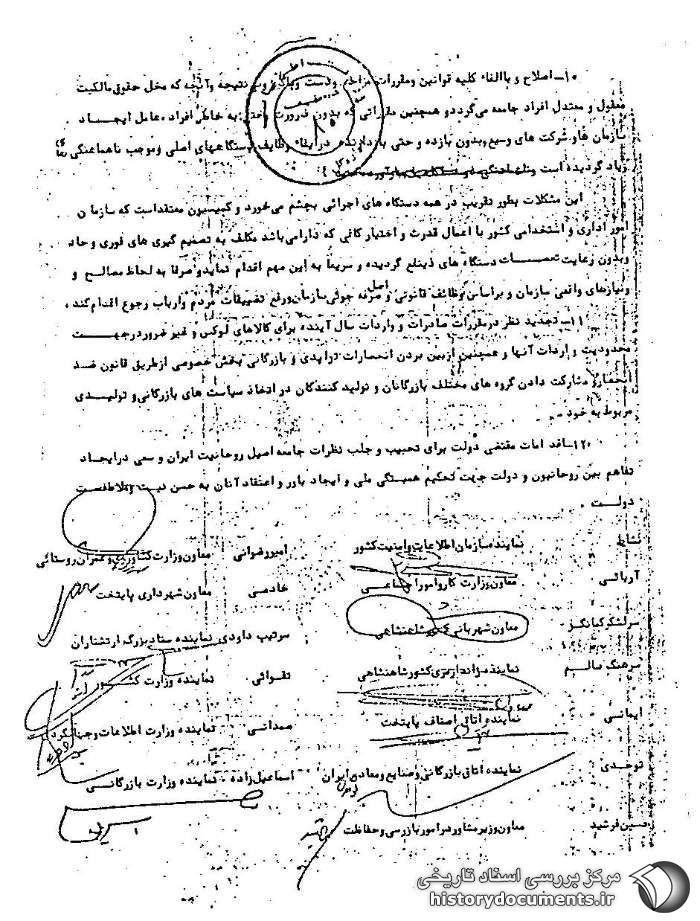 ۱۰ـ اصلاح و یا الغاء کلیه قوانین ومقررات مزاحم ودست وپاگیر نتیجه وآنچه که مخل حقوق مالکیت
معقول و معتدل افراد جامعه می‌گردد و همچنین مقرراتی که بدون ضرورت به خاطر افراد، عامل ایجاد
سازمان ها و شرکت های وسیع وبدون بازده و حتی بازدارنده در ایفاء وظایف دستگاههای اصلی وموجب ناهماهنگی
زیاد گردیده است
این مشکلات بطور تقریب در همه دستگاه های اجرائی بچشم می‌خورد و کمیسیون معتقد است که سازمان
امور اداری و استخدامی کشور با اعمال قدرت و اختیار کافی که دارامی‌باشد مکلف به تصمیم گیری های فوری و حاد
وبدون رعایت تعصبات دستگاه های ذینفع گردیده و سریعا به این مهم اقدام نمایدو صرفا به لحاظ مصالح و
ونیازهای واقعی سازمان و براساس وظائف قانونی و اصل صرفه جوئی سازمان ورفع تضییقات مردم وارباب رجوع اقدام کند،
۱۱ـ تجدید نظر در مقررات صادرات و واردات سال آینده برای کالاهای لوکس و غیر ضرور درجهت
محدودیت واردات آنها و همچنین ازبین بردن انحصارات تولیدی و بازرگانی بخش خصوصی ازطریق قانون ضد
انحصار و مشارکت دادن گروه های مختلف بازرگانان و تولید کنندگان در اتخاذ سیاست های بازرگانی و تولیدی
مربوط به خود
۱۲ـ اقدامات مقتضی دولت برای تحبیب و جلب نظرات جامعه اصیل روحانیت ایران و سعی درایجاد
تفاهم بین روحانیون و دولت جهت تحکیم همبستگی ملی و ایجاد باور و اعتقاد آنان به حسن نیت
دولت .
نشاط نماینده سازمان اطلاعات وامنیت کشور امیررضوانی معاون وزارت کشاورزی وعمران روستائی
آریائی معاون وزارت کاروامور اجتماعی خادمی معاون شهرداری پایتخت
سرلشکر کمانگر معاون شهربانی کشور شاهنشاهی سرتیپ داودی نماینده ستاد بزرگ ارتشتاران
سرهنگ سالم نماینده ژاندارمری کشور شاهنشاهی تقوائی نماینده وزارت کشور
ایمانی نماینده اتاق اصناف پایتخت صمدانی نماینده وزارت اطلاعات وجهانگردی
توحدی نماینده اتاق بازرگانی وصنایع ومعادن ایران اسماعیل زاده نماینده وزارت بازرگانی
حسین فرشید معاون وزیر مشاور در امور بازرسی وحفاظت
مرکز بررسی اسناد تاریخی
historydocuments.ir